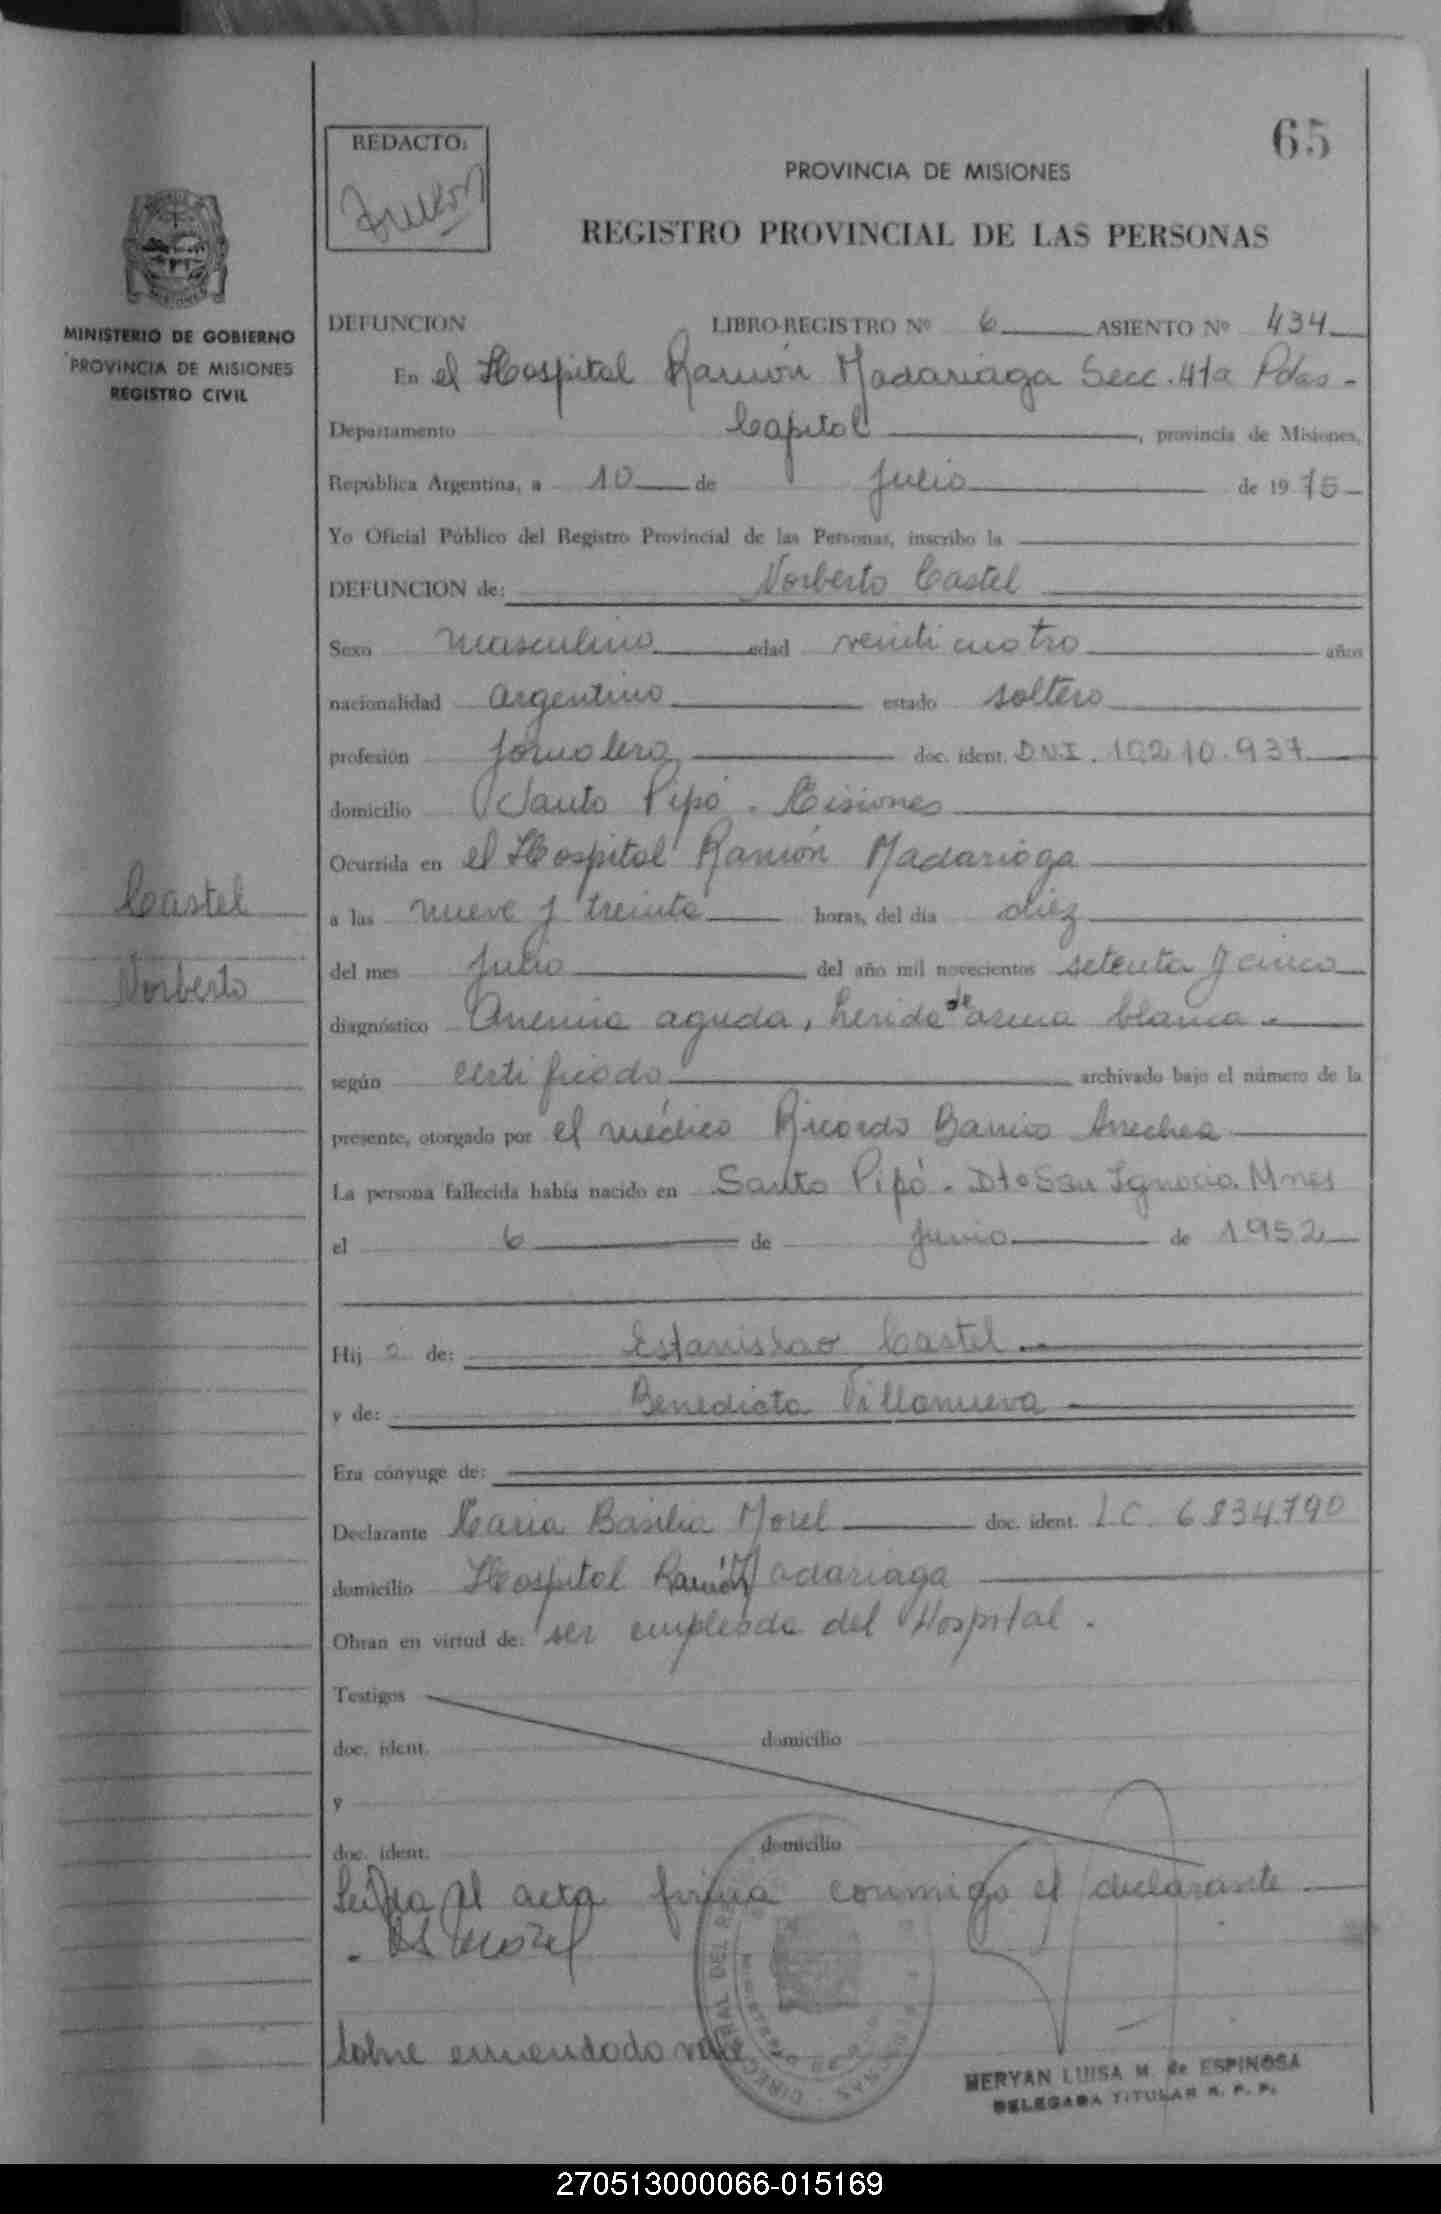 65
REDACTO:
PROVINCIA DE MISIONES
REGISTRO PROVINCIAL DE LAS PERSONAS
MINISTERIO DE GOBIERNO
PROVINCIA DE MISIONES
REGISTRO CIVIL
DEFUNCION LIBRO-REGISTRO Nº 6 ASIENTO Nº 434
En el Hospital Ramón Madariaga Secc. 41a Pdas -
Departamento Capital, provincia de Misiones,
República Argentina, a 10 de Julio de 1975
Yo Oficial Público del Registro Provincial de las Personas, inscribo la
DEFUNCION de: Norberto Castel
Sexo masculino edad veinticuatro años
nacionalidad argentino estado soltero
profesión Jornalero doc. ident. D.N.I. 10.210.937
domicilio Santo Pipó - Misiones
Ocurrida en el Hospital Ramón Madariaga
Castel
a las nueve y treinta horas, del día diez
Norberto
del mes Julio del año mil novecientos setenta y cinco
diagnóstico Anemia aguda, herida de arma blanca.
según certificado archivado bajo el número de la
presente, otorgado por el médico Ricardo Barrios Arrechea
La persona fallecida había nacido en Santo Pipó - Dto San Ignacio. Mnes
el 6 de junio de 1952
Hij o de: Estanislao Castel
y de: Benedicta Villanueva
Era cónyuge de:
Declarante Maria Basilia Morel doc. ident. L.C. 6.834.790
domicilio Hospital Ramón Madariaga
Obran en virtud de: ser empleada del Hospital.
Testigos
doc. ident. domicilio
y
doc. ident. domicilio
Leída el acta firma conmigo el declarante
Morel
Sobre enmendado vale
MERYAN LUISA M. de ESPINOSA
DELEGADA TITULAR R. P. P.
270513000066-015169